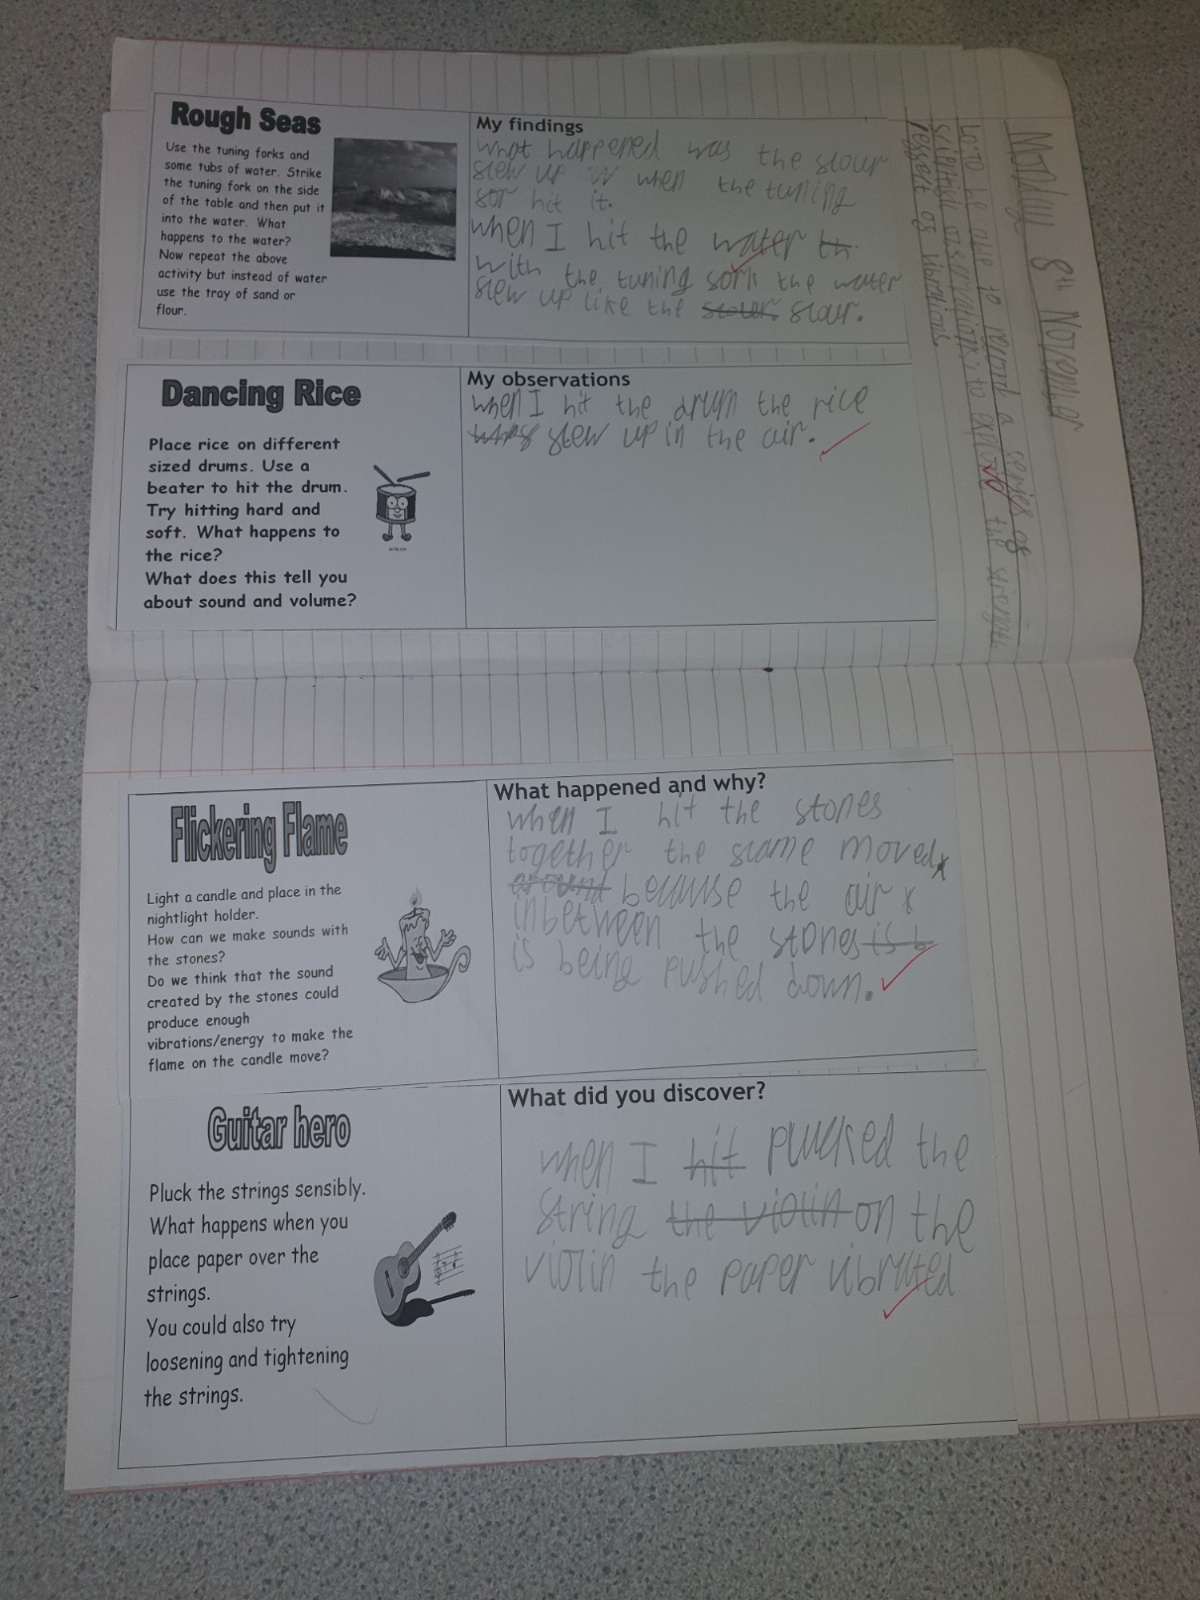 Monday 8th November
LO: To be able to record a series of
scientific observations to explore the strength
effect of vibrations
Rough Seas
Use the tuning forks and
some tubs of water. Strike
the tuning fork on the side
of the table and then put it
into the water. What
happens to the water?
Now repeat the above
activity but instead of water
use the tray of sand or
flour.
My findings
what happened was the slour
slew up when the tuning
sor hit it.
when I hit the water th
with the tuning sork the water
slew up like the slour. slour.
Dancing Rice
Place rice on different
sized drums. Use a
beater to hit the drum.
Try hitting hard and
soft. What happens to
the rice?
What does this tell you
about sound and volume?
My observations
when I hit the drum the rice
slew up in the air.
Flickering Flame
Light a candle and place in the
nightlight holder.
How can we make sounds with
the stones?
Do we think that the sound
created by the stones could
produce enough
vibrations/energy to make the
flame on the candle move?
What happened and why?
when I hit the stones
together the slame moved
around because the air
inbetween the stones is b
is being pushed down.
Guitar hero
Pluck the strings sensibly.
What happens when you
place paper over the
strings.
You could also try
loosening and tightening
the strings.
What did you discover?
when I hit plucked the
string the violin on the
violin the paper vibrated